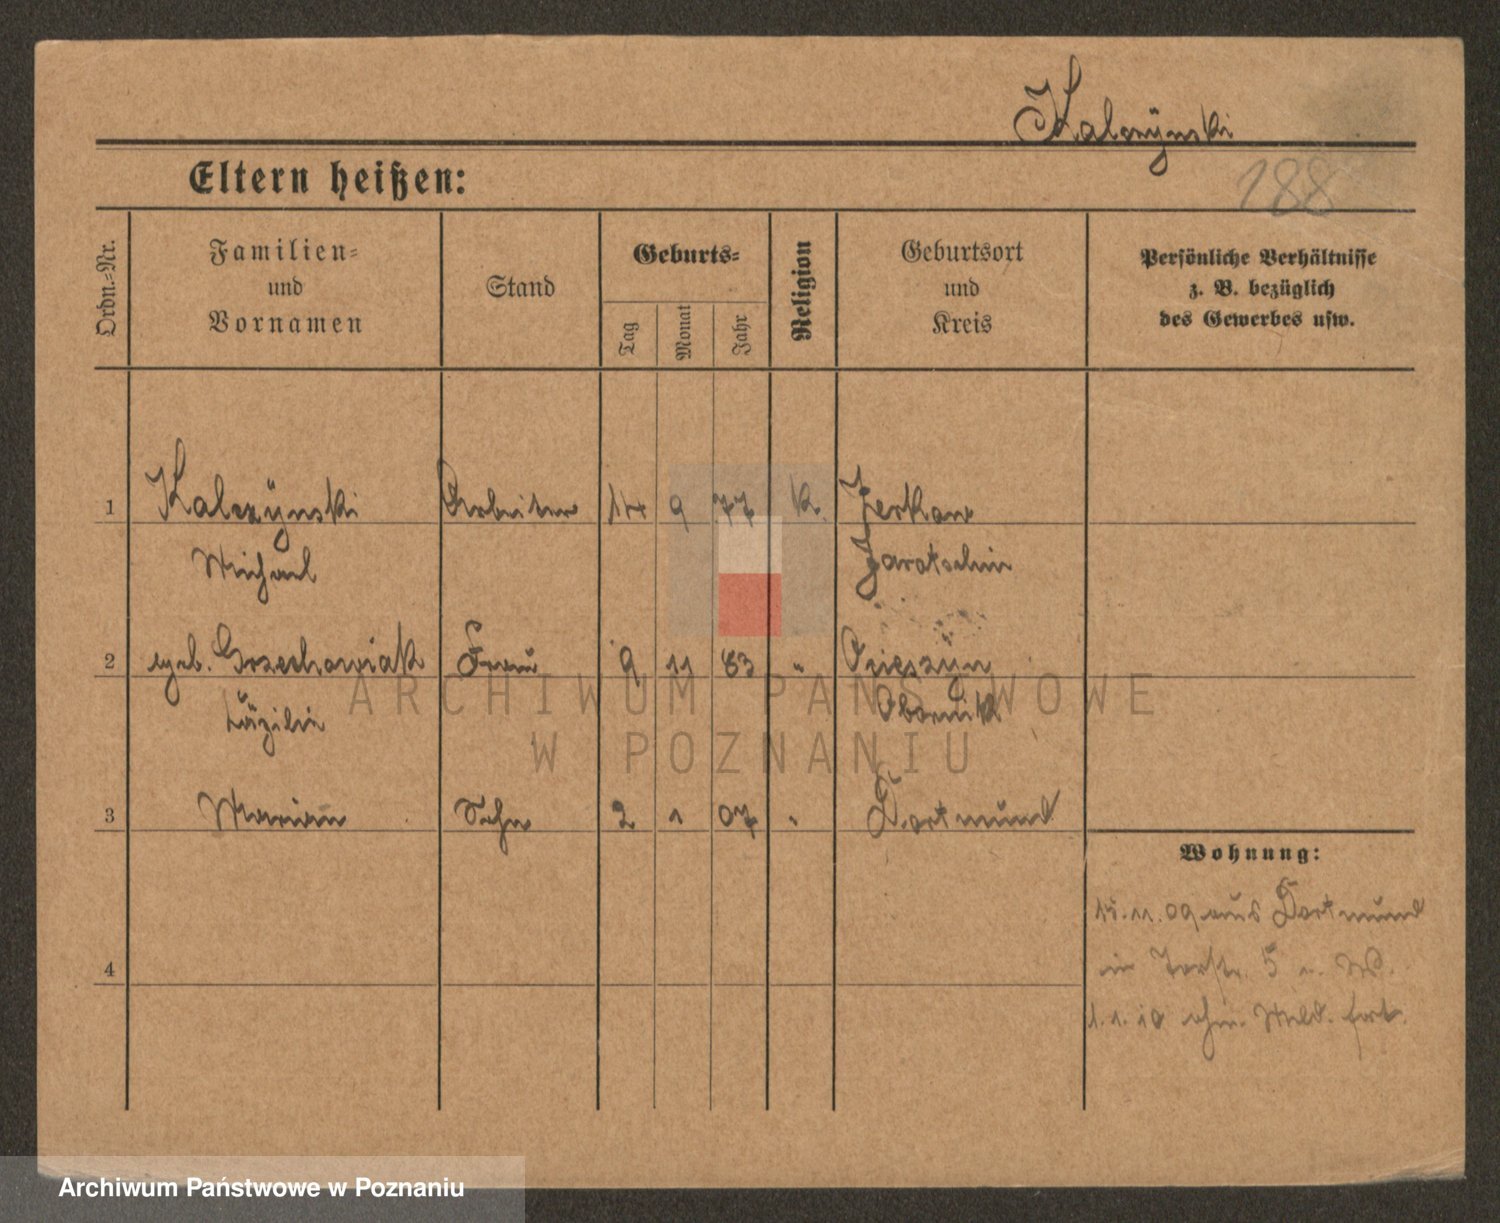 Kalczÿnski
188
Eltern heißen:
Ordn.-Nr.
Familien-
und
Vornamen
Stand
Geburts-
Tag
Monat
Jahr
Religion
Geburtsort
und
Kreis
Persönliche Verhältnisse
z. B. bezüglich
des Gewerbes usw.
1 Kalczÿnski Arbeiter 14 9 77 k. Jerkow
Michael Jarotschin
2 geb. Grzechowiak Frau 9 11 83 "
Zäzilie Obornik
3 Marian Sohn 2 1 07 " Dortmund
Wohnung:
15.11.09 aus Dortmund
in Torstr. 5 n. W.
4
1.1.10 ohn. Meld. fort.
ARCHIWUM PAŃSTWOWE
W POZNANIU
Archiwum Państwowe w Poznaniu